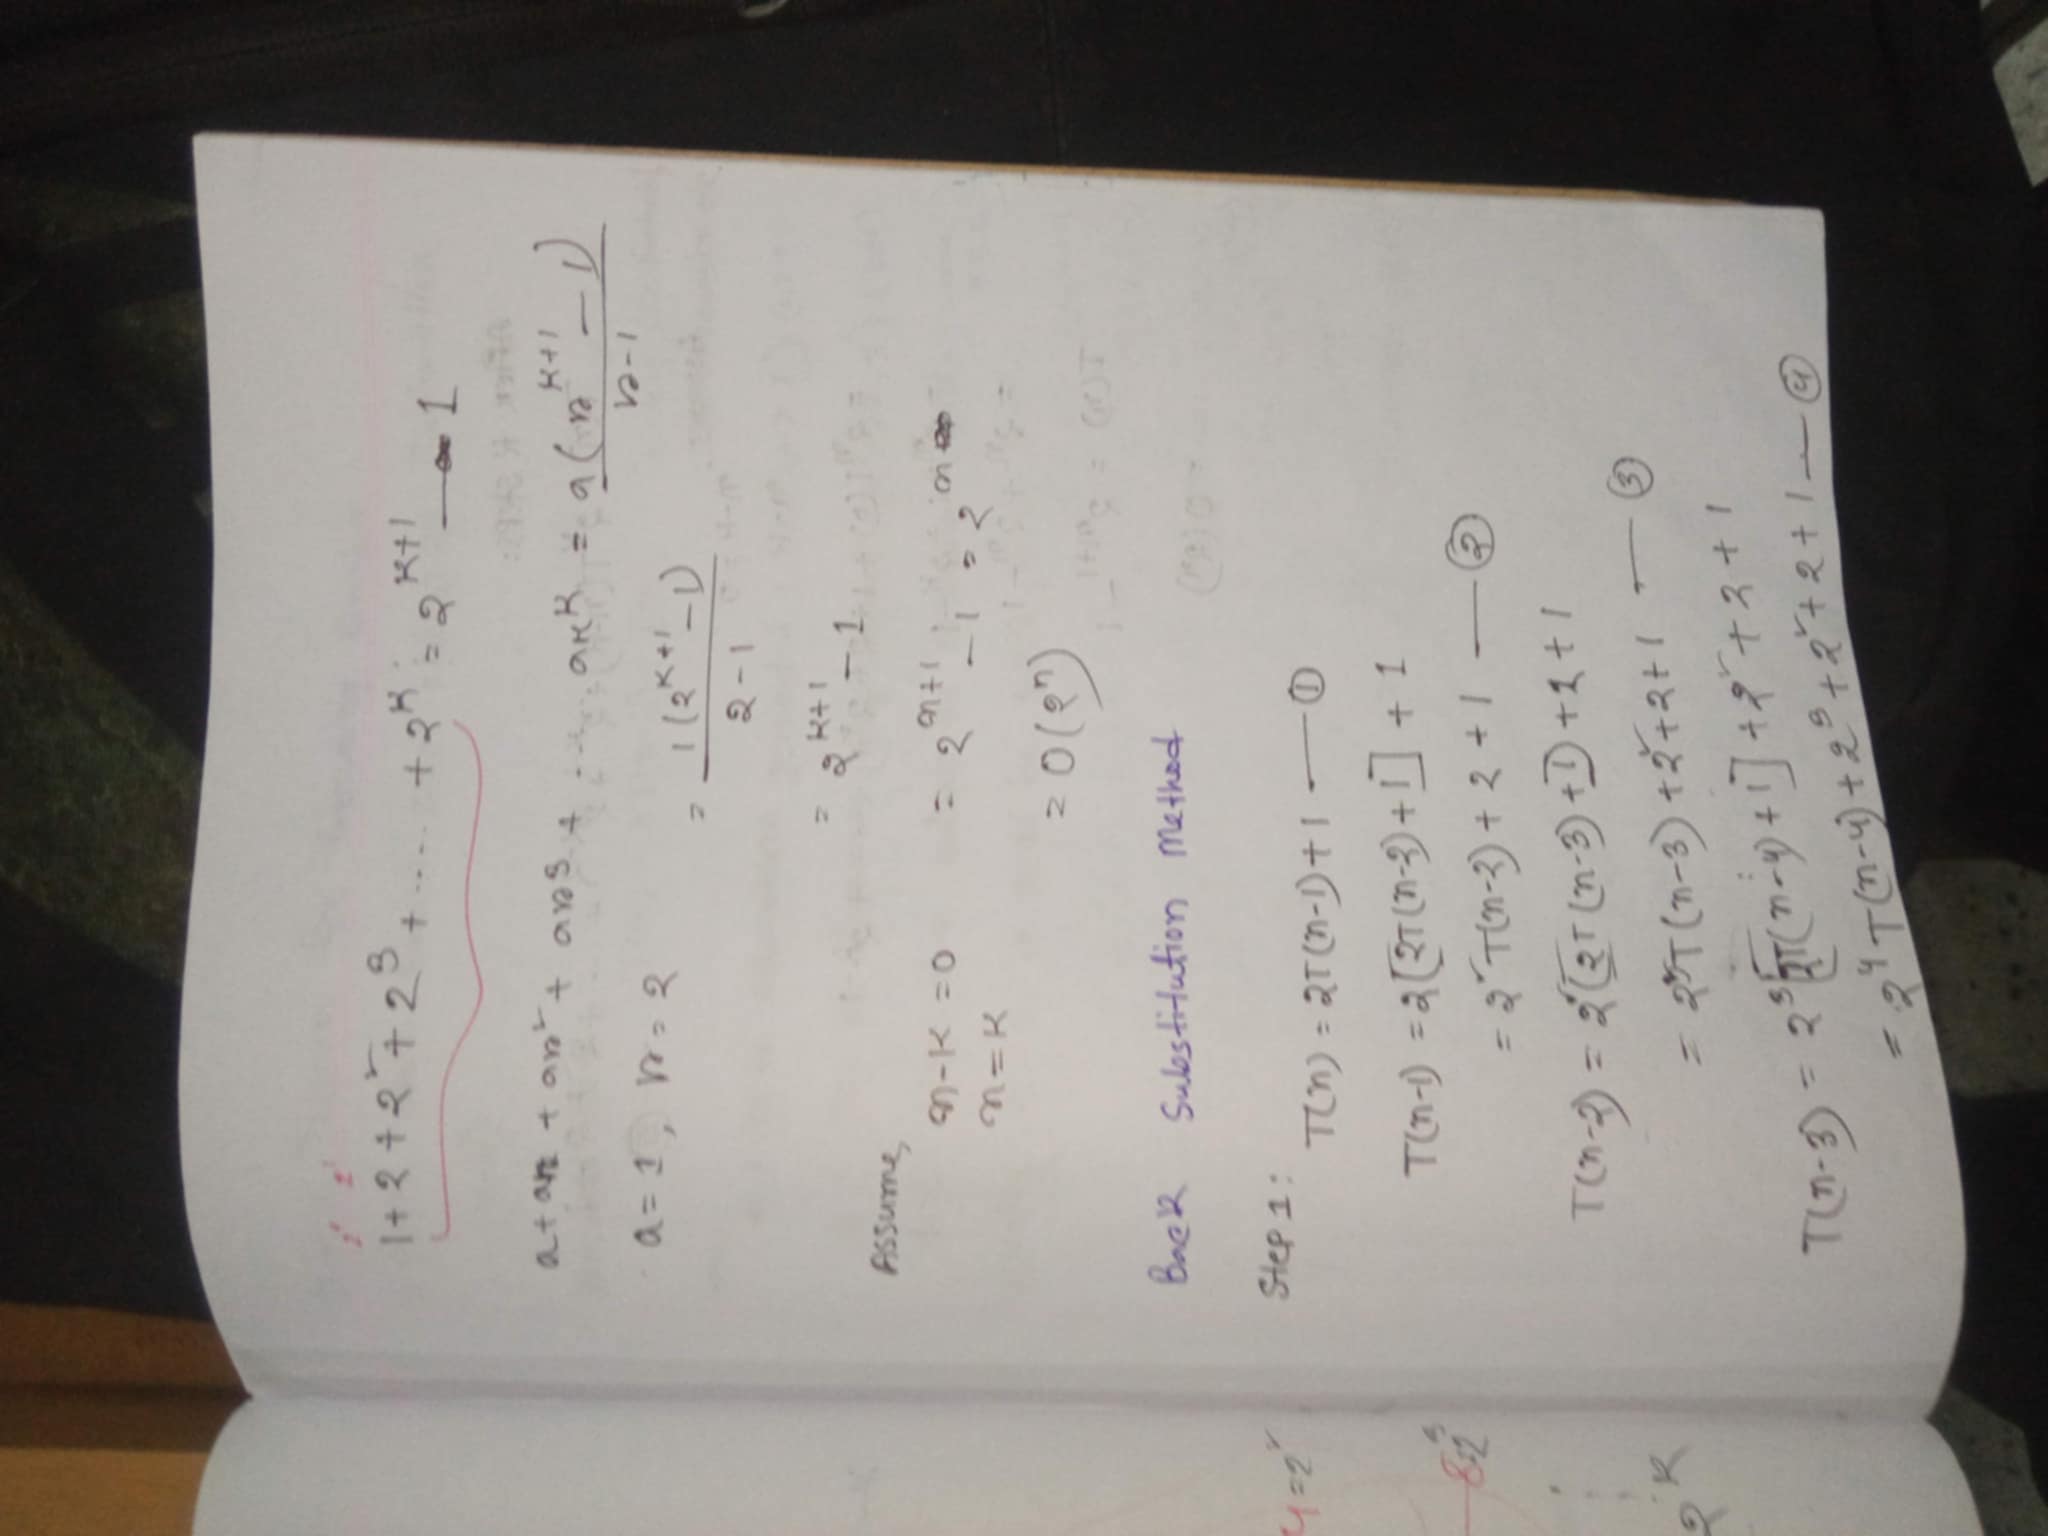 2⁰ 2¹
1+2+2²+2³+.... +2ᴷ = 2ᴷ⁺¹ — 1
a+ar+ar²+ar3+ ..... arᴷ = a(rᴷ⁺¹-1)
r-1
a=1, r=2
= 1(2ᴷ⁺¹-1)
2-1
= 2ᴷ⁺¹-1
Assume,
n-K=0 = 2ⁿ⁺¹-1 = 2ⁿ
n=K
= O(2ⁿ)
Back Substitution Method
Step 1:
T(n) = 2T(n-1)+1 — ①
T(n-1) = 2[2T(n-2)+1] + 1
= 2²T(n-2)+2+1 — ②
T(n-2) = 2²[2T(n-3)+1]+2+1
= 2³T(n-3)+2²+2+1 — ③
T(n-3) = 2³[2T(n-4)+1]+2²+2+1
= 2⁴T(n-4)+2³+2²+2+1 — ④
4=2²
8=2³
2ᴷ